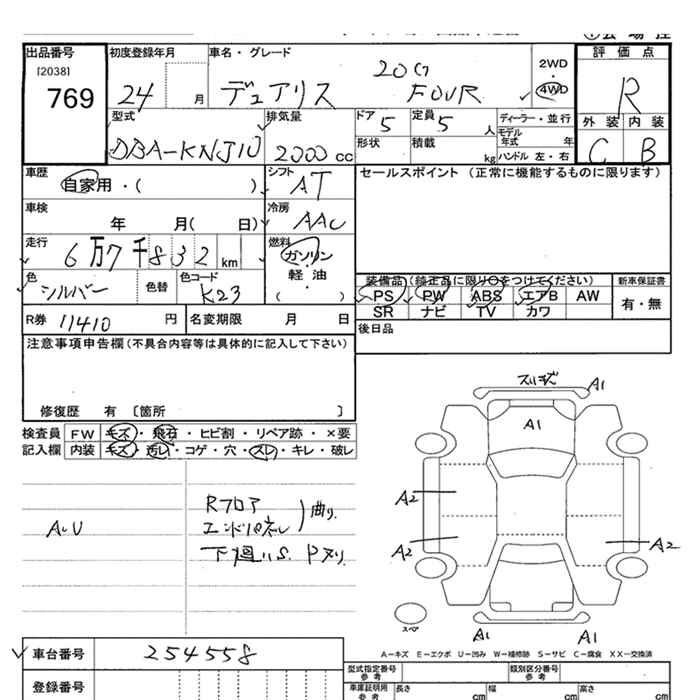 出品番号 初度登録年月 車名・グレード 評価点
[2038]
769
24 月 デュアリス 20G FOUR 2WD 4WD R
型式 排気量 ドア 定員 ディーラー・並行 外装 内装
DBA-KNJ10 2000 cc 5 5 人 モデル年式 年 C B
形状 積載 kg ハンドル 左・右
車歴 シフト セールスポイント (正常に機能するものに限ります)
自家用・( ) AT
車検 冷房
年 月( 日) AAC
走行 燃料
6万7千832 km ガソリン
軽・油
( )
色 色替 色コード 装備品(純正品に限り○をつけてください) 新車保証書
シルバー K23 PS PW ABS エアB AW 有・無
SR ナビ TV カワ
R券 11410 円 名変期限 月 日 後日品
注意事項申告欄(不具合内容等は具体的に記入して下さい)
修復歴 有 〔箇所 〕
検査員 FW キズ・飛石・ヒビ割・リペア跡・×要
記入欄 内装 キズ・汚レ・コゲ・穴・スレ・キレ・破レ
AU
Rフロア
エンドパネル 曲り
下廻りS. Pヌリ
スリキズ A1
A1
A2
A2 A2
スペア
A1 A1
A-キズ E-エクボ U-凹み W-補修跡 S-サビ C-腐食 XX-交換済
車台番号 254558
登録番号
型式指定番号 参考 類別区分番号 参考
車庫証明用 参考 長さ cm 幅 cm 高さ cm